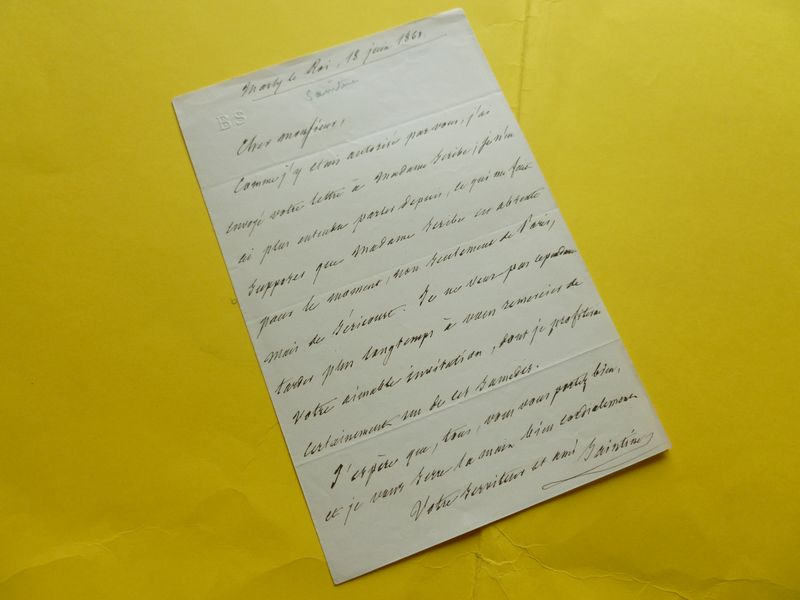 Marly le Roi, 18 juin 186
Saintine
BS
Cher monsieur,
Comme j'y étais autorisé par vous, j'ai
envoyé votre lettre à Madame Scribe; je n'en
ai plus entendu parler depuis, ce qui me fait
supposer que Madame Scribe est absente
pour le moment, non seulement de Paris,
mais de Séricourt. Je ne veux pas cependant
tarder plus longtemps à vous remercier de
votre aimable invitation, dont je profiterai
certainement un de ces samedis.
J'espère que, tous, vous vous portez bien,
et je vous serre la main bien cordialement
Votre serviteur et ami Saintine